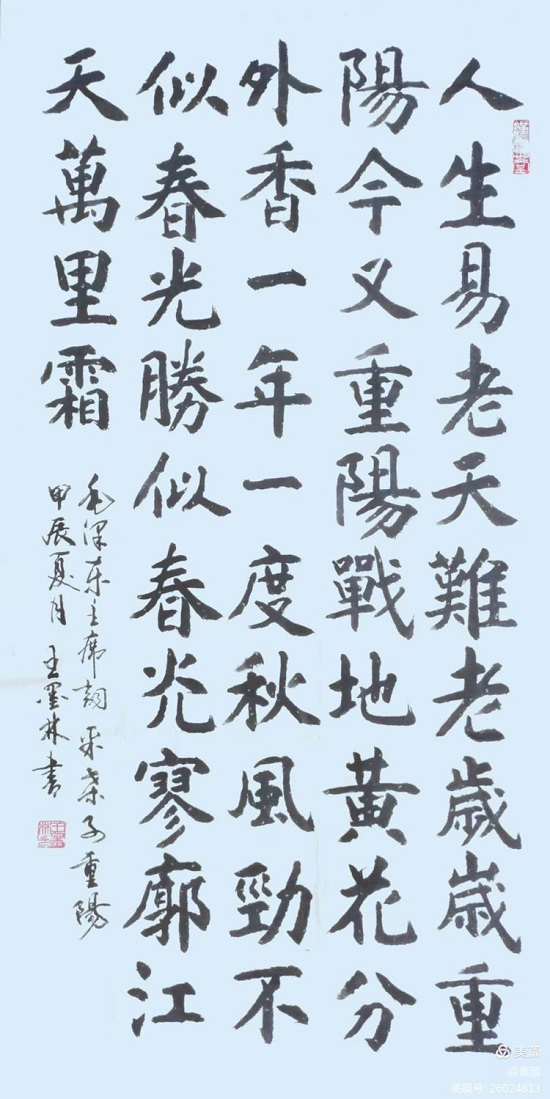 人生易老天難老歲歲重
陽今又重陽戰地黃花分
外香一年一度秋風勁不
似春光勝似春光寥廓江
天萬里霜
毛澤東主席詞采桑子重陽
甲辰夏月 王墨林書
美篇
美篇号: 26024813